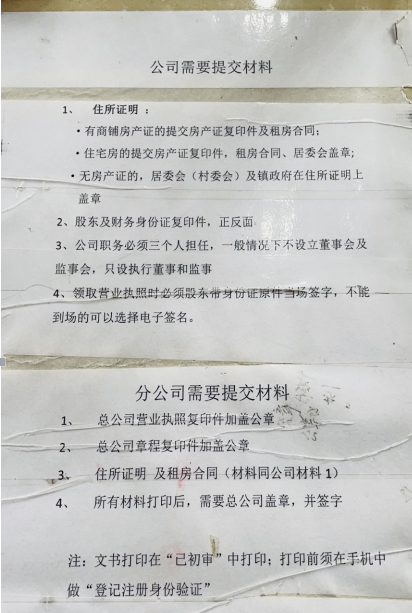 公司需要提交材料
1、 住所证明 ：
·有商铺房产证的提交房产证复印件及租房合同；
·住宅房的提交房产证复印件，租房合同、居委会盖章；
·无房产证的，居委会（村委会）及镇政府在住所证明上
盖章
2、股东及财务身份证复印件，正反面
3、公司职务必须三个人担任，一般情况下不设立董事会及
监事会，只设执行董事和监事
4、领取营业执照时必须股东带身份证原件当场签字，不能
到场的可以选择电子签名。
分公司需要提交材料
1、 总公司营业执照复印件加盖公章
2、 总公司章程复印件加盖公章
3、 住所证明 及租房合同（材料同公司材料 1）
4、 所有材料打印后，需要总公司盖章，并签字
注：文书打印在“已初审”中打印；打印前须在手机中
做“登记注册身份验证”